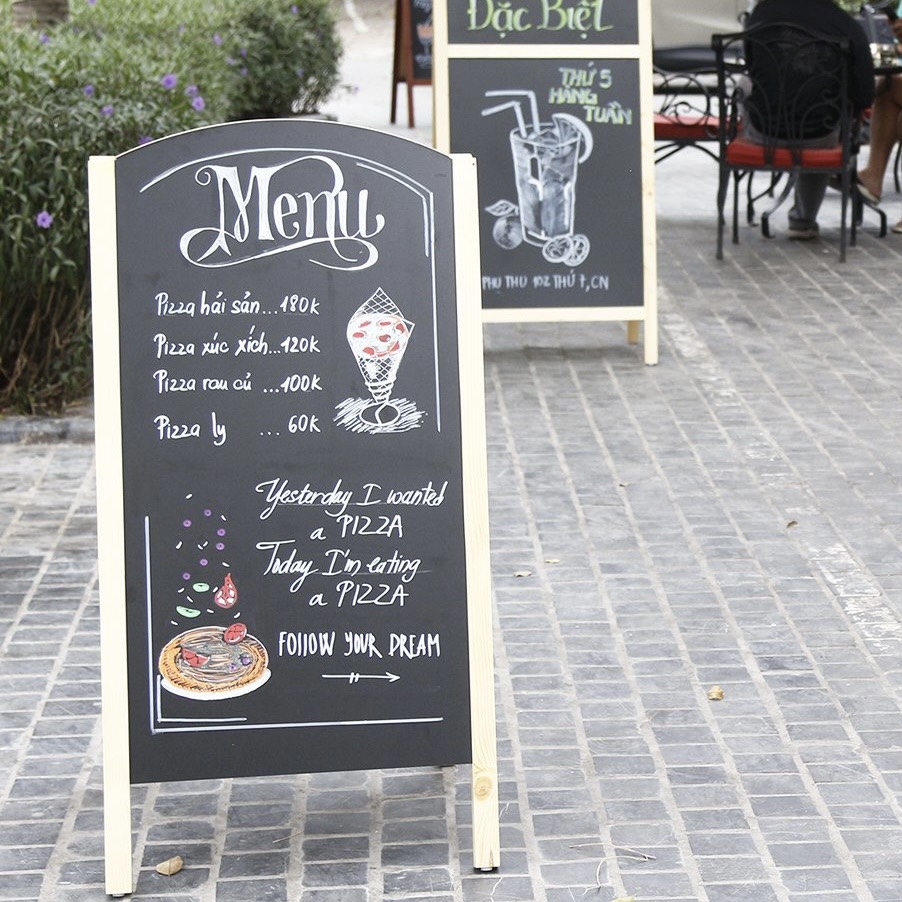 Đặc Biệt
THỨ 5
HÀNG
TUẦN
PHỤ THU 10% THỨ 7, CN
Menu
Pizza hải sản...180K
Pizza xúc xích...120K
Pizza rau củ ...100K
Pizza ly ... 60K
Yesterday I wanted
a PIZZA
Today I'm eating
a PIZZA
FOllOW YOUR DREAM